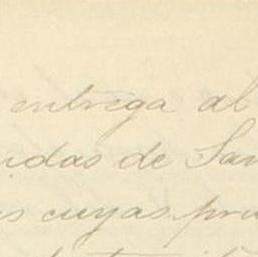 entrega al
idas de San
s cuyas pru